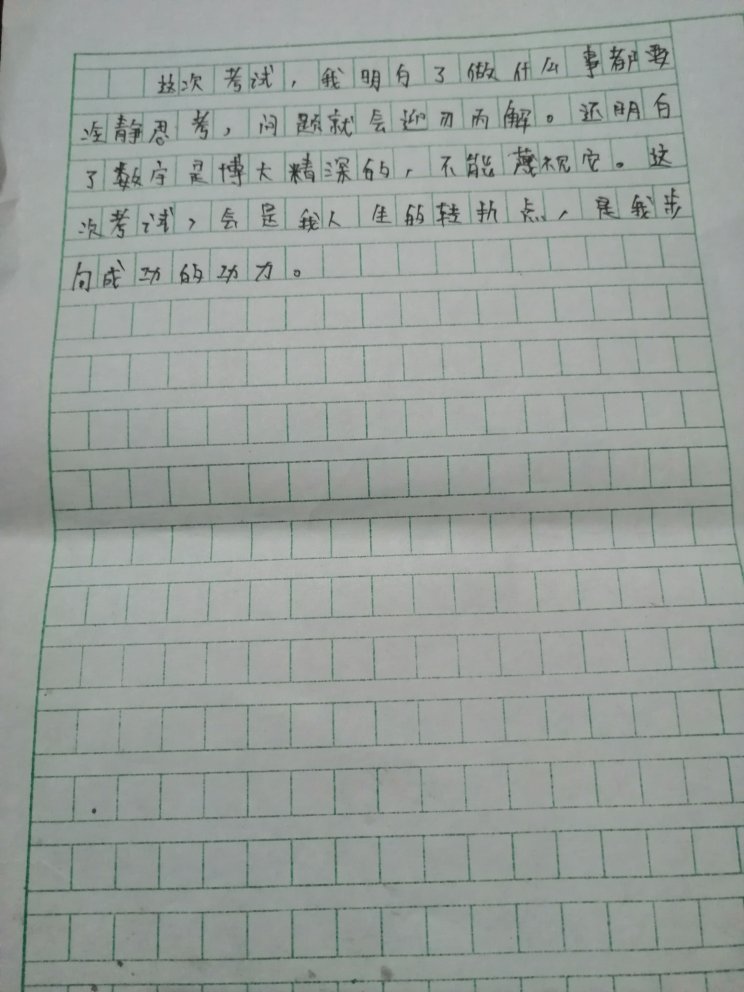 这次考试，我明白了做什么事都要
冷静思考，问题就会迎刃而解。还明白
了数字是博大精深的，不能蔑视它。这
次考试，会是我人生的转折点，是我步
向成功的动力。